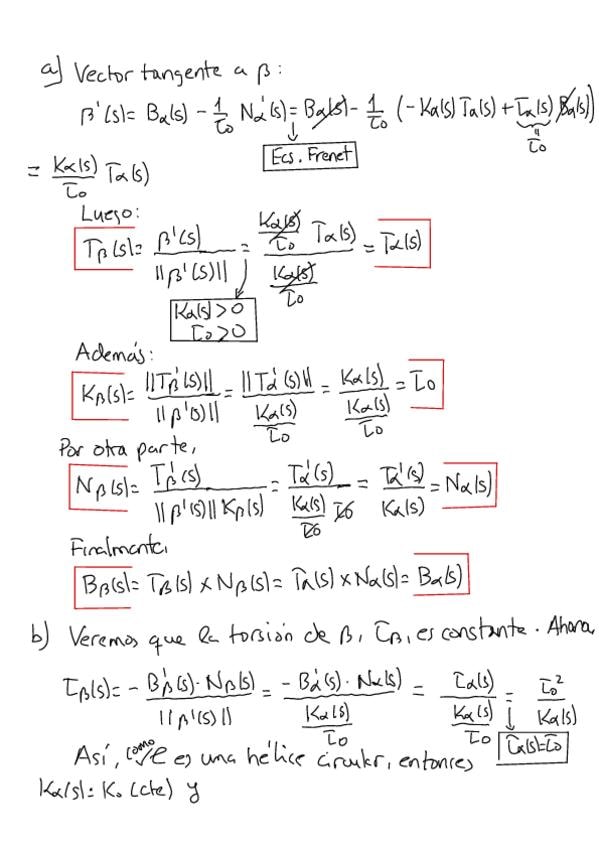 a) Vector tangente a β:
β'(s) = Bα(s) - 1/τ₀ N'α(s) = Bα(s) - 1/τ₀ (-Kα(s) Tα(s) + τα(s) Bα(s))
↓ Ecs. Frenet || τ₀
= Kα(s)/τ₀ Tα(s)
Luego:
Tβ(s) = β'(s)/||β'(s)|| = (Kα(s)/τ₀ Tα(s))/(Kα(s)/τ₀) = Tα(s)
Kα(s) > 0
τ₀ > 0
Además:
Kβ(s) = ||T'β(s)||/||β'(s)|| = ||T'α(s)||/(Kα(s)/τ₀) = Kα(s)/(Kα(s)/τ₀) = τ₀
Por otra parte,
Nβ(s) = T'β(s)/(||β'(s)|| Kβ(s)) = T'α(s)/(Kα(s)/τ₀ τ₀) = T'α(s)/Kα(s) = Nα(s)
Finalmente,
Bβ(s) = Tβ(s) × Nβ(s) = Tα(s) × Nα(s) = Bα(s)
b) Veremos que la torsión de β, τβ, es constante. Ahora,
τβ(s) = - B'β(s)·Nβ(s)/||β'(s)|| = -B'α(s)·Nα(s)/(Kα(s)/τ₀) = τα(s)/(Kα(s)/τ₀) = τ₀²/Kα(s)
↓ τα(s) = τ₀
Así, como es una hélice circular, entonces
Kα(s) = K₀ (cte) y